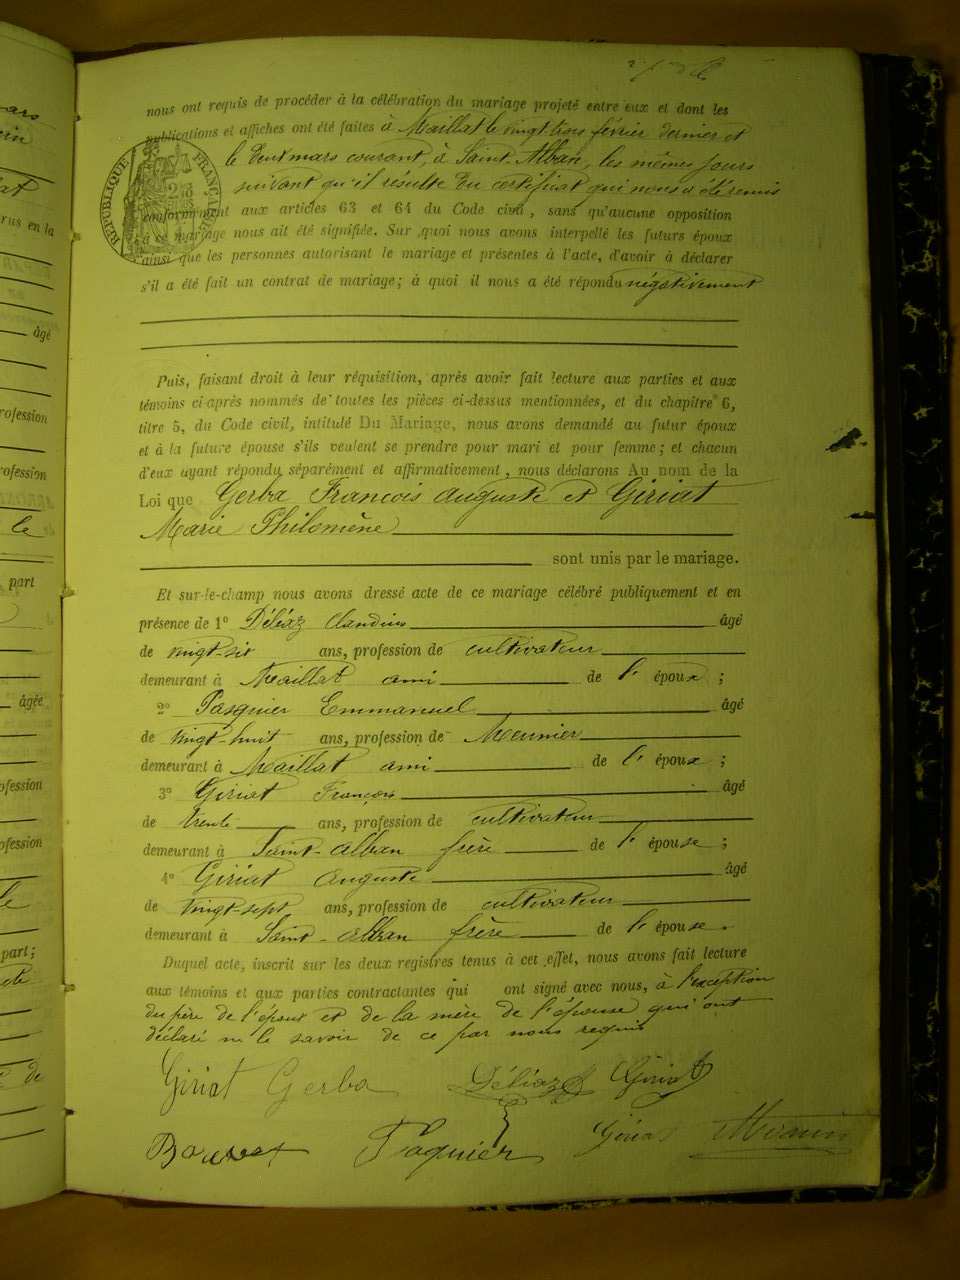 nous ont requis de procéder à la célébration du mariage projeté entre eux et dont les
publications et affiches ont été faites à Maillat le vingt trois février dernier et
le deux mars courant, à Saint Alban, les mêmes jours
suivant qu'il résulte du certificat qui nous a été remis
conformément aux articles 63 et 64 du Code civil, sans qu'aucune opposition
à ce mariage nous ait été signifiée. Sur quoi nous avons interpellé les futurs époux
ainsi que les personnes autorisant le mariage et présentes à l'acte, d'avoir à déclarer
s'il a été fait un contrat de mariage; à quoi il nous a été répondu négativement
RÉPUBLIQUE FRANÇAISE
Puis, faisant droit à leur réquisition, après avoir fait lecture aux parties et aux
témoins ci-après nommés de toutes les pièces ci-dessus mentionnées, et du chapitre 6,
titre 5, du Code civil, intitulé Du Mariage, nous avons demandé au futur époux
et à la future épouse s'ils veulent se prendre pour mari et pour femme; et chacun
d'eux ayant répondu séparément et affirmativement, nous déclarons Au nom de la
Loi que Gerba François Auguste et Giriat
Marie Philomène
sont unis par le mariage.
Et sur-le-champ nous avons dressé acte de ce mariage célébré publiquement et en
présence de 1° Déléaz Claudius âgé
de vingt-six ans, profession de cultivateur
demeurant à Maillat ami de l'époux;
2° Pasquier Emmanuel âgé
de vingt-huit ans, profession de Meunier
demeurant à Maillat ami de l'époux;
3° Giriat François âgé
de trente ans, profession de cultivateur
demeurant à Saint-Alban frère de l'épouse;
4° Giriat Auguste âgé
de vingt-sept ans, profession de cultivateur
demeurant à Saint-Alban frère de l'épouse.
Duquel acte, inscrit sur les deux registres tenus à cet effet, nous avons fait lecture
aux témoins et aux parties contractantes qui ont signé avec nous, à l'exception
du père de l'époux et de la mère de l'épouse qui ont
déclaré ne le savoir de ce par nous requis
Giriat Gerba Déléaz Giriat
Paquier Giriat